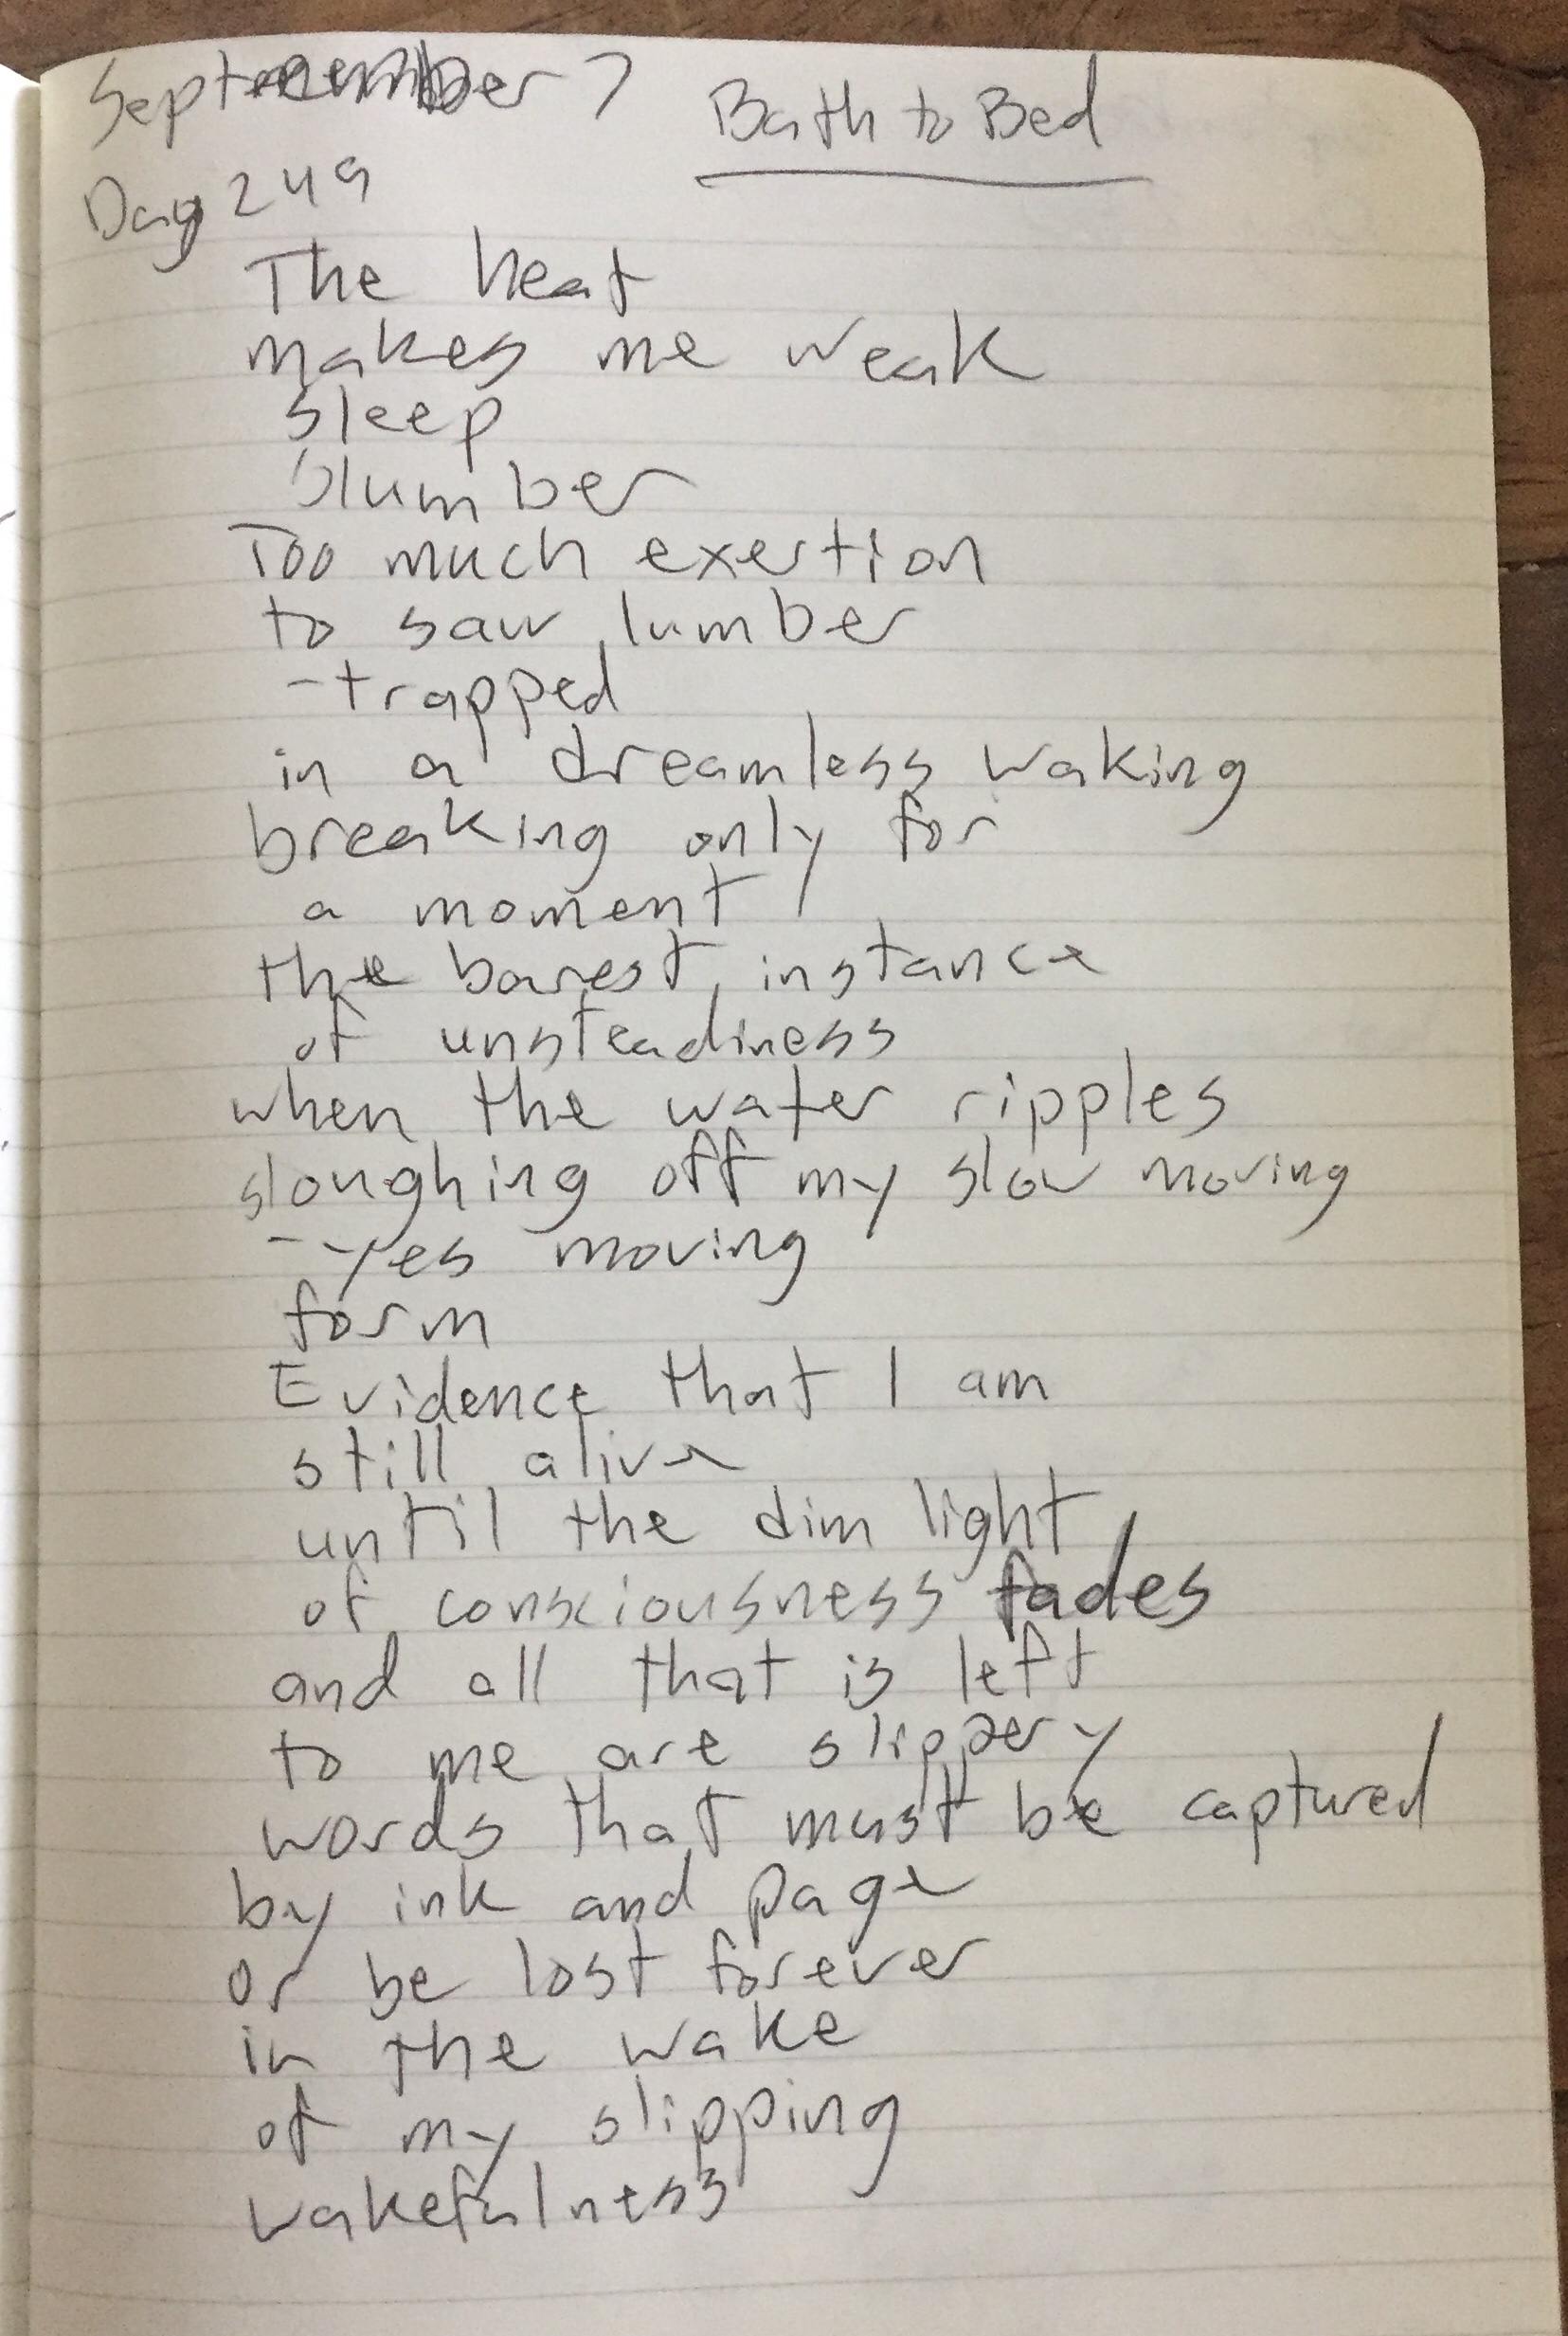 September 7
Bath to Bed
Day 249
The heat
makes me weak
sleep
slumber
Too much exertion
to saw lumber
- trapped
in a dreamless waking
breaking only for
a moment
the barest instance
of unsteadiness
when the water ripples
sloughing off my slow moving
- yes moving
form
Evidence that I am
still alive
until the dim light
of consciousness fades
and all that is left
to me are slippery
words that must be captured
by ink and page
or be lost forever
in the wake
of my slipping
wakefulness